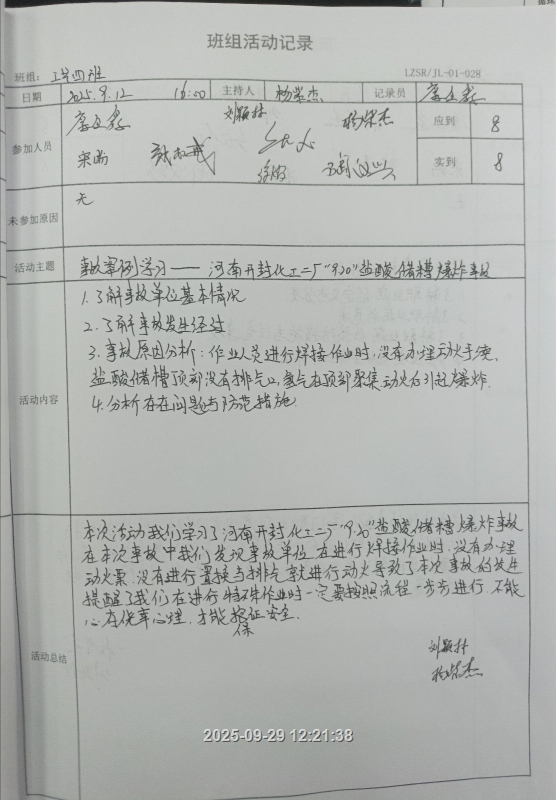 班组活动记录
班组: 四班 LZSR/JL-01-028
日期 2025.9.12 16:00 主持人 杨荣杰 记录员
参加人员 刘颖林 杨荣杰 应到 8
宋尚 实到 8
未参加原因 无
活动主题 事故案例学习——河南开封化工二厂"9.20"盐酸储槽爆炸事故
活动内容
1.了解事故单位基本情况
2.了解事故发生经过
3.事故原因分析:作业人员进行焊接作业时,没有办理动火手续,
盐酸储槽顶部没有排气口,氢气在顶部聚集动火后引起爆炸.
4.分析存在问题与防范措施.
活动总结
本次活动我们学习了河南开封化工二厂"9.20"盐酸储槽爆炸事故
在本次事故中我们发现事故单位在进行焊接作业时,没有办理
动火票,没有进行置换与排气就进行动火导致了本次事故的发生
提醒了我们在进行特殊作业时一定要按照流程一步步进行,不能
心存侥幸心理,才能保证安全.
刘颖林
杨荣杰
2025-09-29 12:21:38